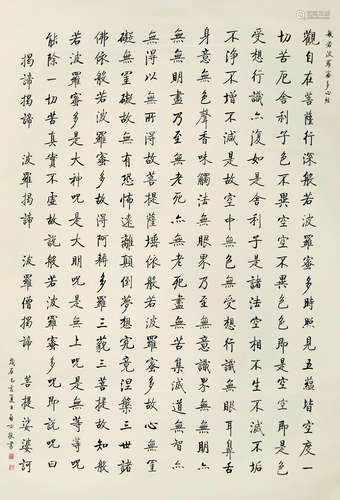 般若波羅蜜多心經
觀自在菩薩行深般若波羅蜜多時照見五蘊皆空度一
切苦厄舍利子色不異空空不異色色即是空空即是色
受想行識亦復如是舍利子是諸法空相不生不滅不垢
不淨不增不減是故空中無色無受想行識無眼耳鼻舌
身意無色聲香味觸法無眼界乃至無意識界無無明亦
無無明盡乃至無老死亦無老死盡無苦集滅道無智亦
無得以無所得故菩提薩埵依般若波羅蜜多故心無罣
礙無罣礙故無有恐怖遠離顛倒夢想究竟涅槃三世諸
佛依般若波羅蜜多故得阿耨多羅三藐三菩提故知般
若波羅蜜多是大神咒是大明咒是無上咒是無等等咒
能除一切苦真實不虛故說般若波羅蜜多咒即說咒曰
揭諦揭諦 波羅揭諦 波羅僧揭諦 菩提娑婆訶